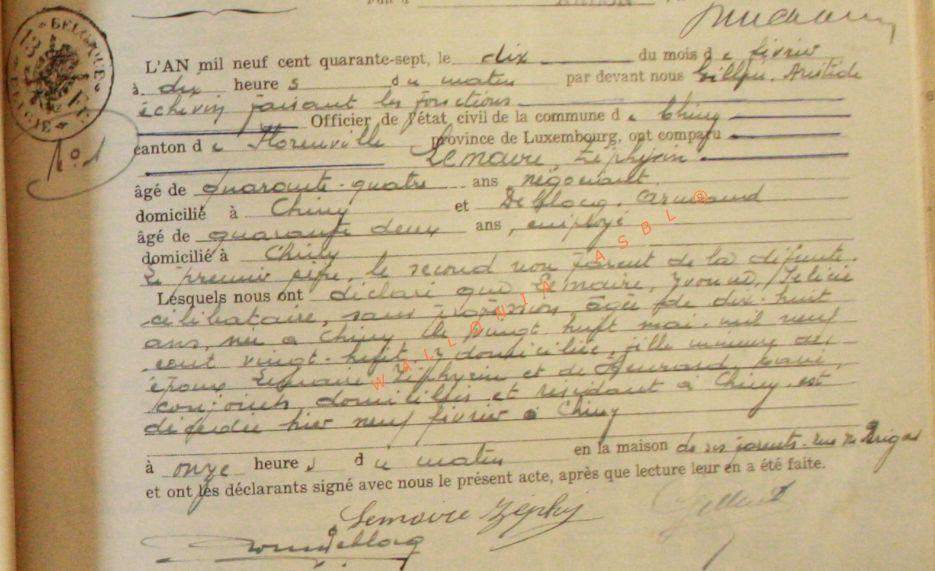 BELGIQUE
L'AN mil neuf cent quarante-sept, le dix du mois de février
à dix heures du matin par devant nous Aristide
échevin faisant les fonctions
Officier de l'état civil de la commune de Chiny
N° 1
canton de Florenville province de Luxembourg, ont comparu
Lemaire, Zéphyrin
âgé de quarante-quatre ans négociant
domicilié à Chiny et Deblocq, Armand
âgé de quarante deux ans, employé
domicilié à Chiny
Le premier père, le second non parent de la défunte.
Lesquels nous ont déclaré que Lemaire, Yvonne, Félicie
célibataire, sans profession, âgée de dix-huit
ans, née à Chiny le vingt huit mai mil neuf
cent vingt-huit, y domiciliée, fille mineure des
époux Lemaire Zéphyrin et de
conjoints, domiciliés et résidant à Chiny est
décédée hier neuf février à Chiny
à onze heures du matin en la maison de ses parents, rue
et ont les déclarants signé avec nous le présent acte, après que lecture leur en a été faite.
Lemaire Zéphy
Deblocq
WALLONIA ASBL ®